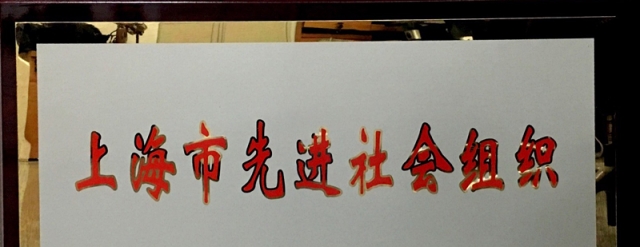 上海市先进社会组织